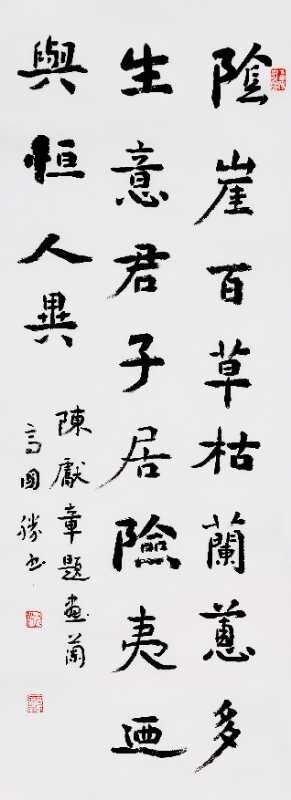 陰崖百草枯蘭蕙多
生意君子居險夷迺
與恒人異
陳獻章題畫蘭
高國勝書